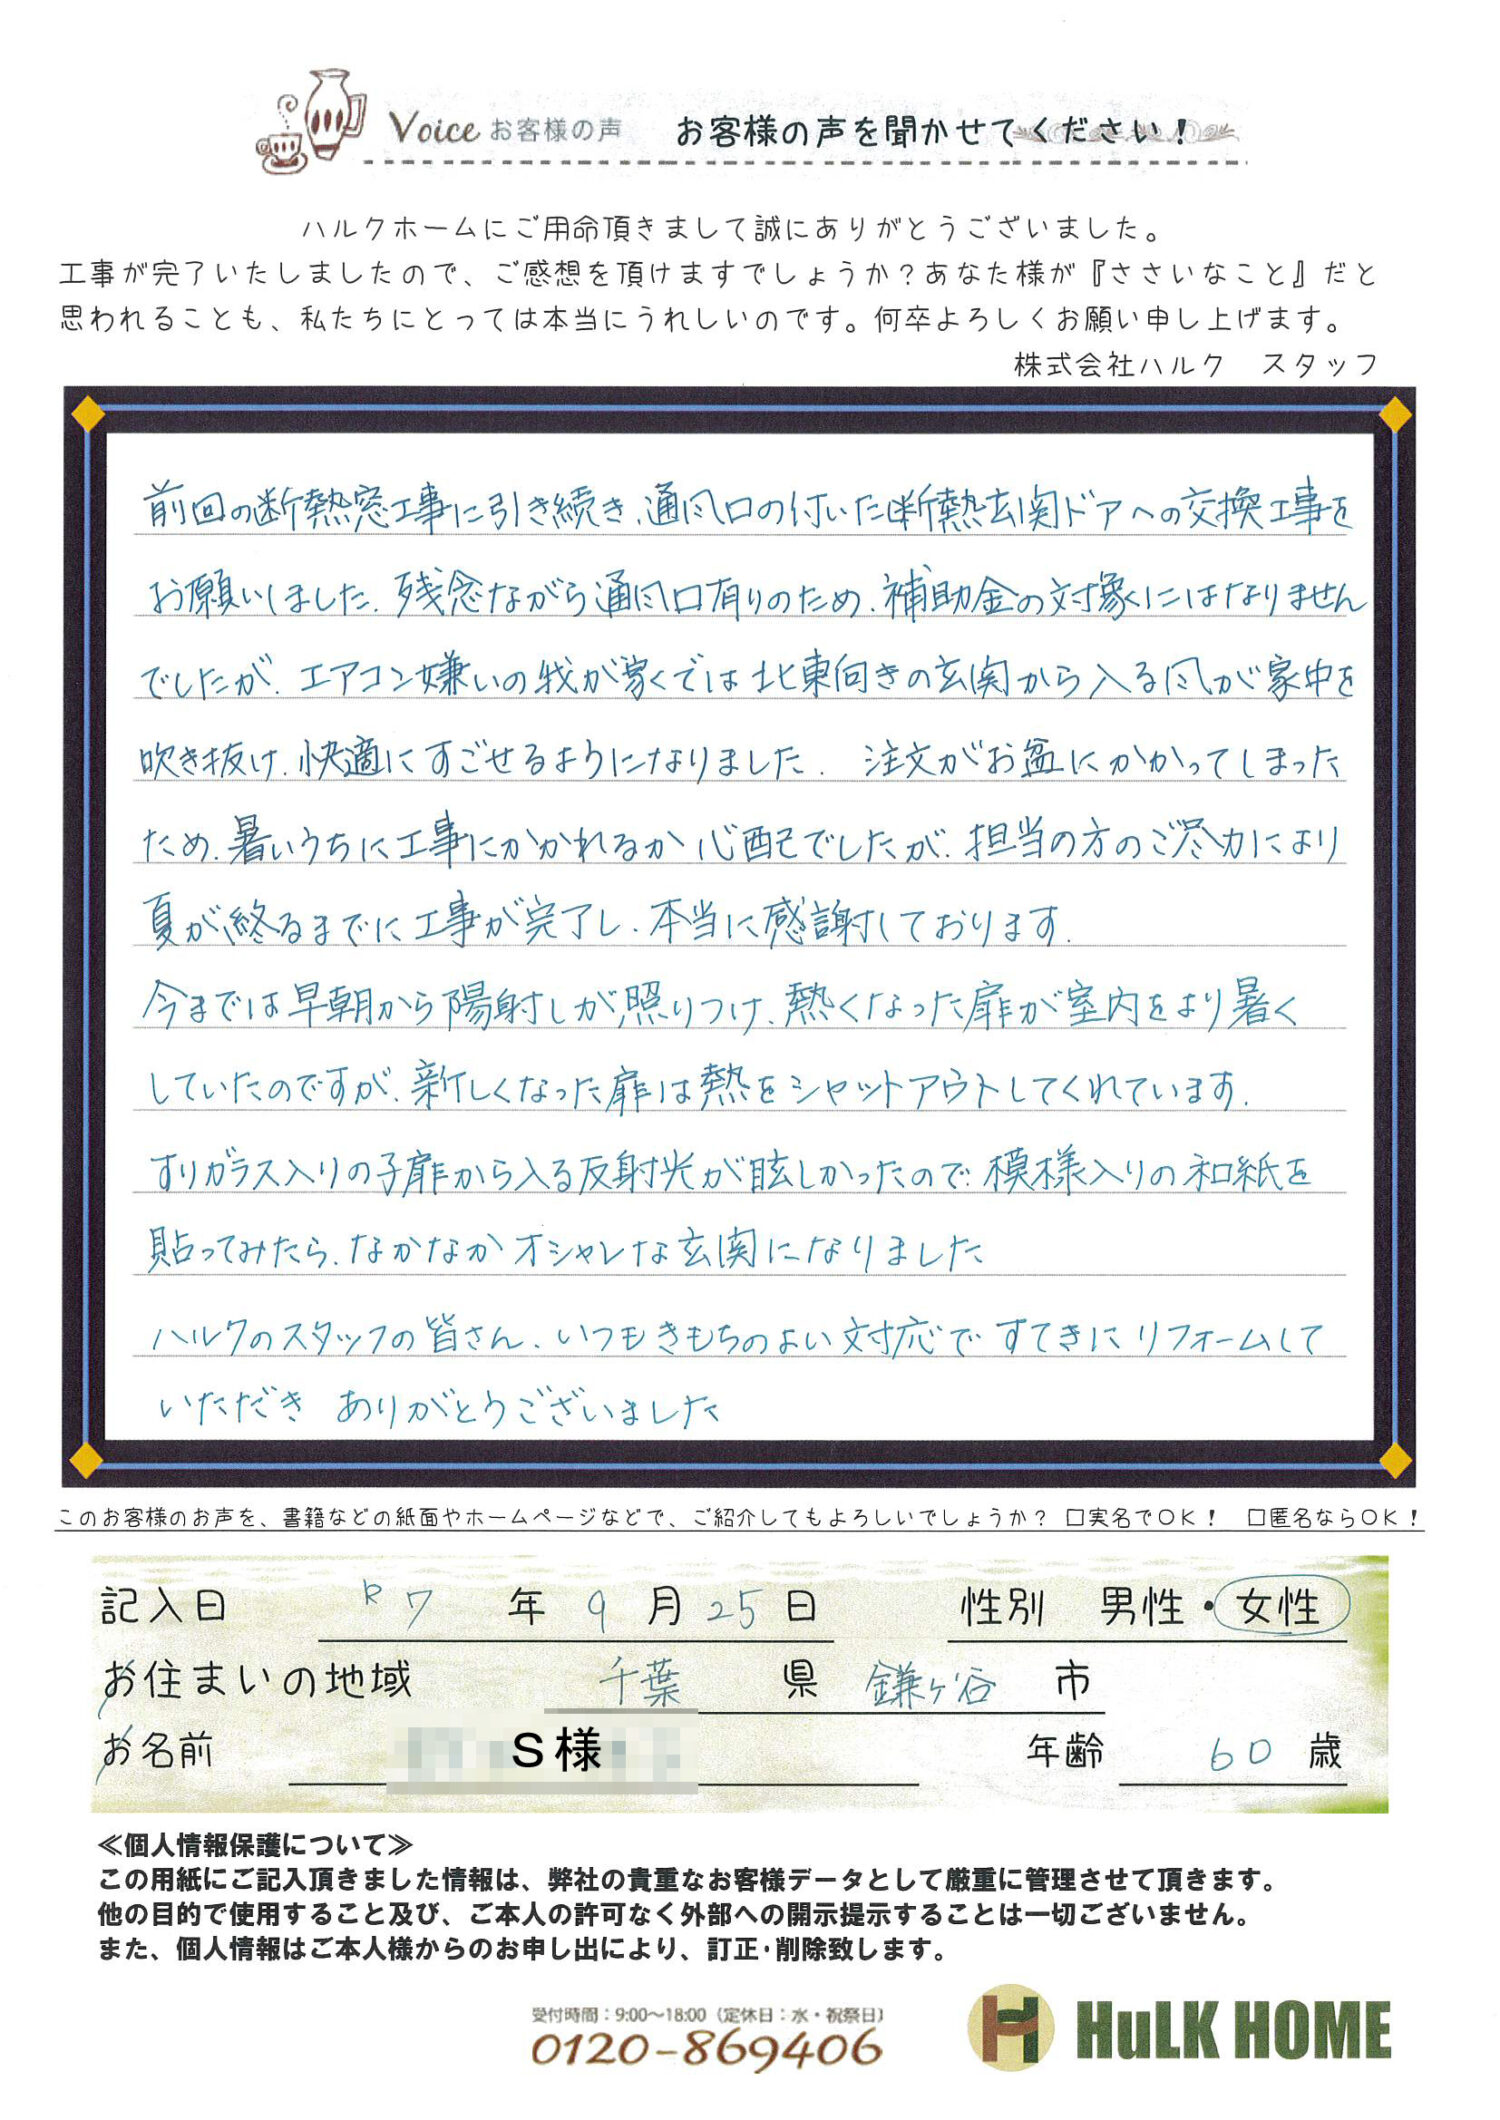 Voice お客様の声 お客様の声を聞かせてください！
ハルクホームにご用命頂きまして誠にありがとうございました。
工事が完了いたしましたので、ご感想を頂けますでしょうか？あなた様が『ささいなこと』だと
思われることも、私たちにとっては本当にうれしいのです。何卒よろしくお願い申し上げます。
株式会社ハルク　スタッフ
前回の断熱窓工事に引き続き、通風口の付いた断熱玄関ドアへの交換工事を
お願いしました。残念ながら通風口有りのため、補助金の対象にはなりません
でしたが、エアコン嫌いの我が家では北東向きの玄関から入る風が家中を
吹き抜け、快適にすごせるようになりました。 注文がお盆にかかってしまった
ため、暑いうちに工事にかかれるか心配でしたが、担当の方のご尽力により
夏が終るまでに工事が完了し、本当に感謝しております。
今までは早朝から陽射しが照りつけ、熱くなった扉が室内をより暑く
していたのですが、新しくなった扉は熱をシャットアウトしてくれています。
すりガラス入りの子扉から入る反射光が眩しかったので 模様入りの和紙を
貼ってみたら、なかなかオシャレな玄関になりました
ハルクのスタッフの皆さん、いつもきもちのよい対応で すてきにリフォームして
いただき ありがとうございました
このお客様のお声を、書籍などの紙面やホームページなどで、ご紹介してもよろしいでしょうか？ 口実名でOK！ 口匿名ならOK！
記入日 R7 年 9 月 25 日 性別 男性・女性
お住まいの地域 千葉 県 鎌ヶ谷 市
お名前 S様 年齢 60 歳
≪個人情報保護について≫
この用紙にご記入頂きました情報は、弊社の貴重なお客様データとして厳重に管理させて頂きます。
他の目的で使用すること及び、ご本人の許可なく外部への開示提示することは一切ございません。
また、個人情報はご本人様からのお申し出により、訂正・削除致します。
受付時間：9:00〜18:00（定休日：水・祝祭日）
0120-869406
HuLK HOME